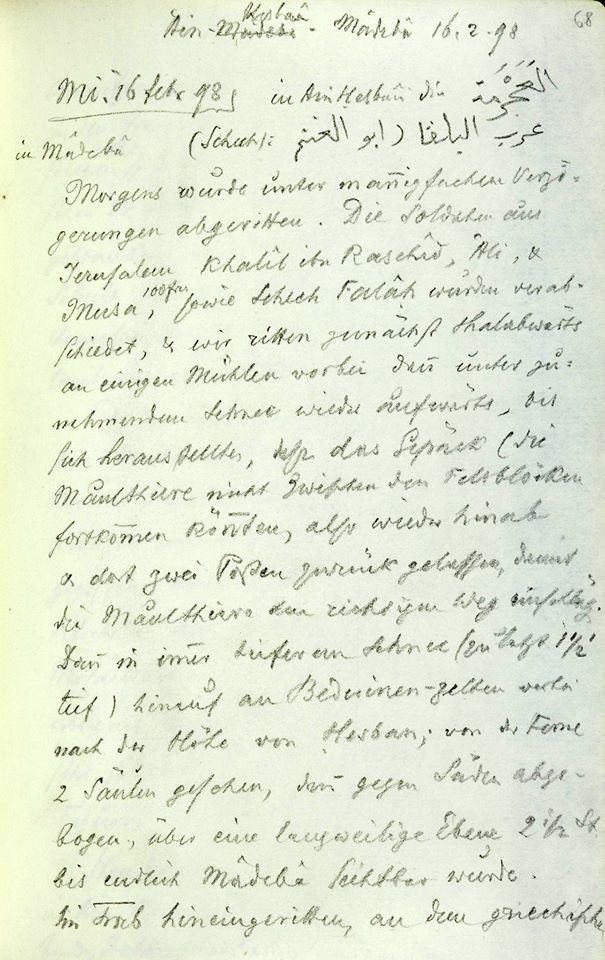 68
Ain-Hesbân - Mâdebâ 16.2.98
Mi. 16 Febr 98, in Ain Hesbân die العَجَرْمَة
in Mâdebâ (Schech): عرب البلقا (ابو الغنم
Morgens wurde unter mannigfachen Verzö=
gerungen abgeritten. Die Soldaten aus
Jerusalem Khalîl ibn Raschîd, Ali, &
Musa, 100 frs, sowie Schech Falâh wurden verab-
schiedet, & wir ritten zunächst thalabwärts
an einigen Mühlen vorbei dann unter zu=
nehmendem Schnee wieder aufwärts, bis
sich herausstellte, dass das Gepäck (die
Maulthiere nicht zwischen den Felsblöcken
fortkommen könnten, also wieder hinab
& dort zwei Posten zurück gelassen, damit
die Maulthiere den richtigen Weg einschlüg.
Dann in immer tieferem Schnee (zuletzt 1 1/2'
tief) hinauf an Beduinen-zelten vorbei
nach der Höhe von Hesban; von der Ferne
2 Säulen gesehen, dann gegen Süden abge-
bogen, über eine langweilige Ebene 2 1/2 St.
bis endlich Mâdebâ sichtbar wurde.
Im Trab hineingeritten, an dem griechische